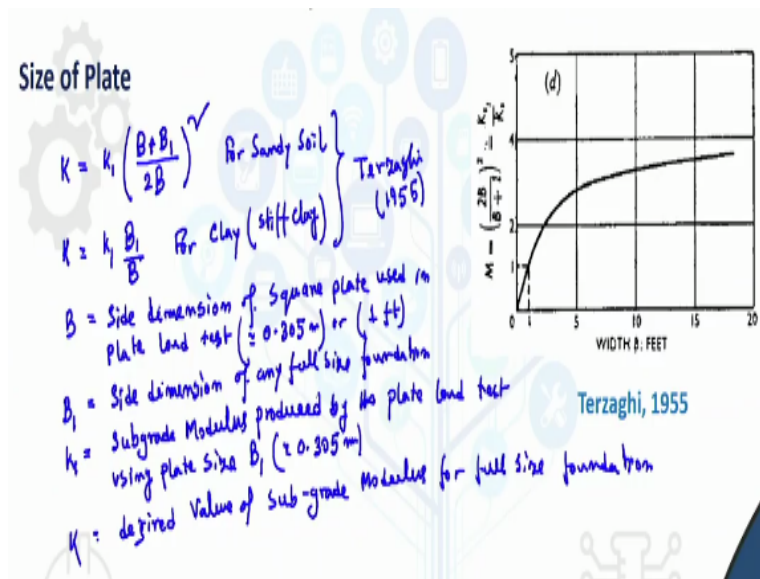 Size of Plate
K = K₁ (B+B₁ / 2B)² For Sandy Soil
K = k₁ B₁/B For clay (stiff clay)
} Terzaghi (1955)
B = Side dimension of square plate used in
plate load test (= 0.305 m) or (1 ft)
B₁ = Side dimension of any full size foundation
k₁ = Subgrade Modulus produced by the plate load test
using plate size B₁ (≈ 0.305 m)
K = desired value of sub-grade Modulus for full size foundation
(d)
M = (2B / B + 1)² =
5
4
2
1
0 1 5 10 15 20
WIDTH B: FEET
Terzaghi, 1955